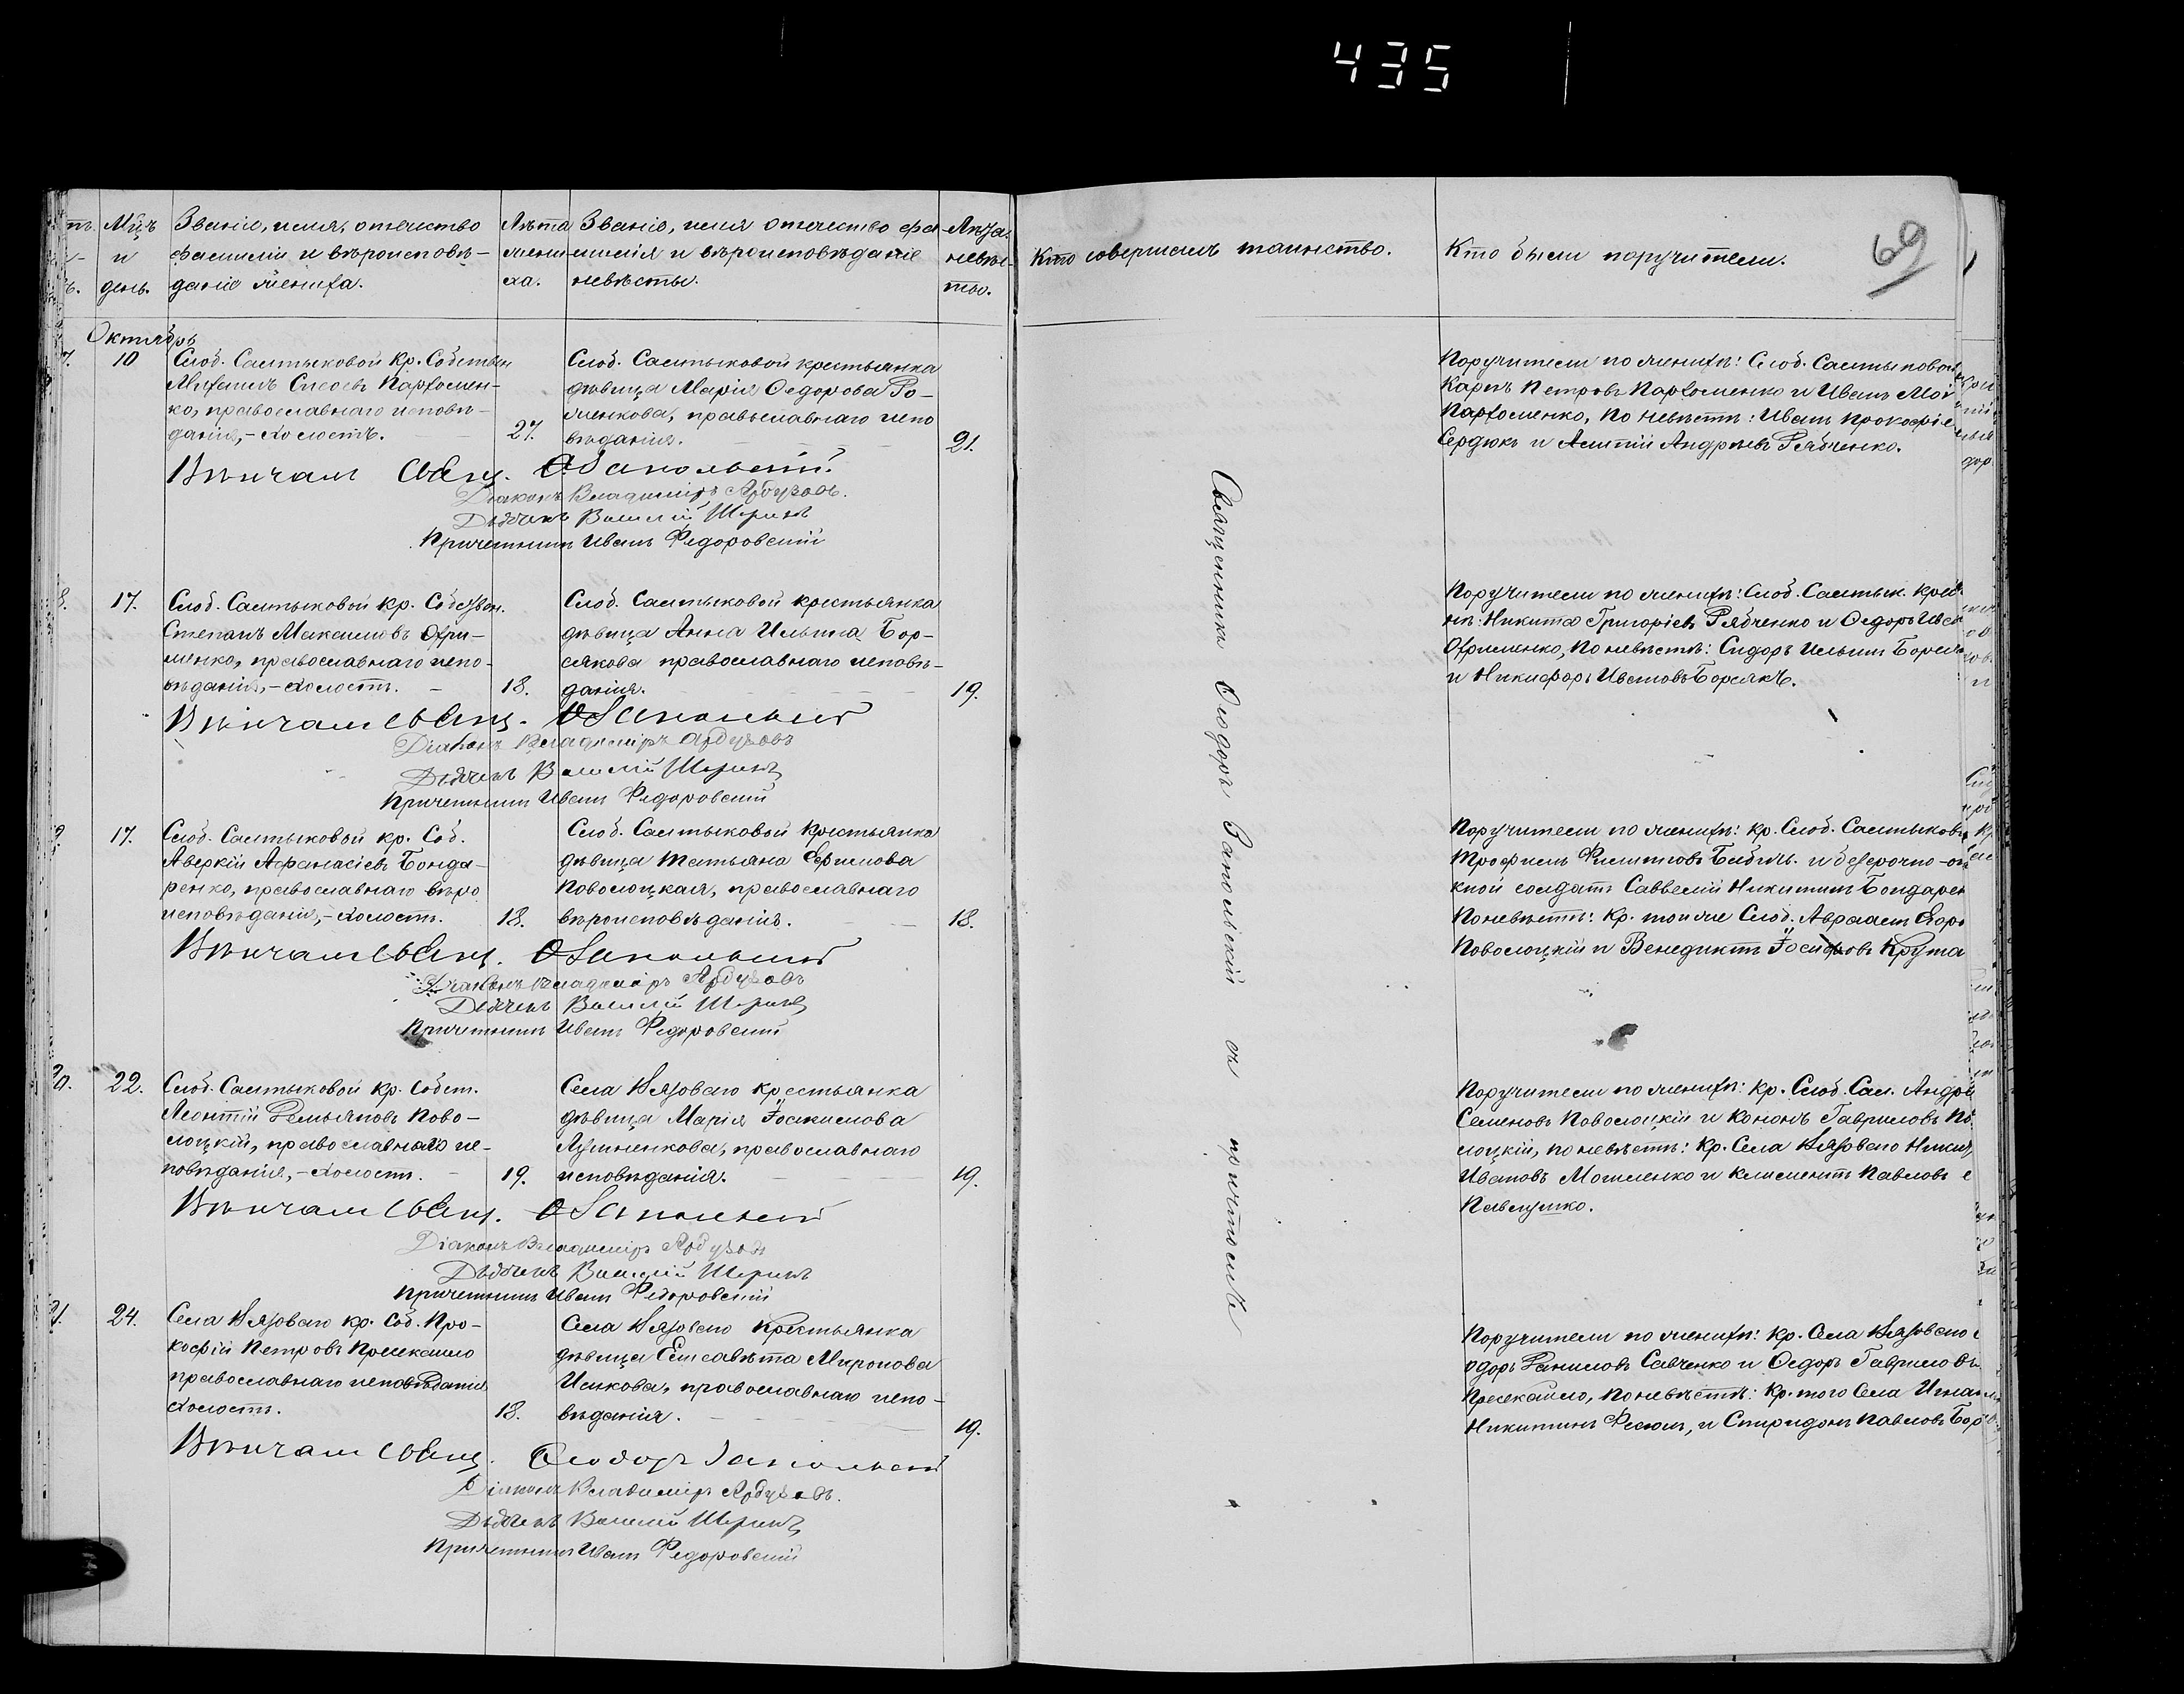 435
69
Мц҃ъ
и
день.
Званіе, имя, отчество
фамилія и вѣроисповѣ-
даніе жениха.
Лѣта
жени-
ха.
Званіе, имя отчество фа-
милія и вѣроисповѣданіе
невѣсты.
Лѣта
невѣс-
ты.
Кто совершилъ таинство.
Кто были поручители.
Октябрь
10
Слоб. Салтыковой Кр. Собствен
Михаилъ Сысоевъ Пархомен-
ко, православнаго исповѣ-
данія,- холостъ.
27.
Слоб. Салтыковой крестьянка
дѣвица Марія Ѳедорова
православнаго испо
вѣданія.
21.
Поручители по женихѣ: Слоб. Салтыковой
Карпъ Петровъ Пархоменко и Иванъ
Пархоменко, по невѣстѣ: Иванъ Прокофіе
Сердюкъ и Андреевъ Рябченко.
Вѣнчалъ Свящ. Ѳ Запольскій.
Діаконъ Владиміръ Арбузовъ.
Дьячекъ Василій
Причетникъ Иванъ Федоровскій
17.
Слоб. Салтыковой кр. Собствен.
Степанъ Максимовъ Охри-
менко, православнаго испо-
вѣданія,- холостъ.
18.
Слоб. Салтыковой крестьянка
дѣвица Анна Ильина Бор-
сякова православнаго исповѣ-
данія.
19.
Поручители по женихѣ: Слоб. Салтык. крес
не: Никита Григорьевъ Рябченко и Ѳедоръ Ива
Охрименко, по невѣстѣ: Сидоръ Ильинъ Борся
и Никифоръ Ивановъ Борсякъ.
Вѣнчалъ Свящ. Ѳ Запольскій
Діаконъ Владиміръ Арбузовъ
Дьячекъ Василій
Причетникъ Иванъ Федоровскій
17.
Слоб. Салтыковой кр. Соб.
Аверкій Афанасіевъ Бонда-
ренко, православнаго вѣро
исповѣданія,- холостъ.
18.
Слоб. Салтыковой Крестьянка
дѣвица Татьяна Ефимова
Новолоцкая, православнаго
вѣроисповѣданія.
18.
Поручители по женихѣ: кр. Слоб. Салтыков
Трофимъ Филиповъ Бабичъ. и безсрочно-отп
кной солдатъ Савелій Никитинъ Бондарен
По невѣстѣ: Кр. той же Слоб. Авраамъ
Новолоцкій и Венедиктъ Іосифовъ Крута
Вѣнчалъ Свящ. Ѳ Запольскій
Діаконъ Владиміръ Арбузовъ
Дьячекъ Василій
Причетникъ Иванъ Федоровскій
22.
Слоб. Салтыковой кр. Собст.
Леонтій Демьяновъ Ново-
лоцкій, православнаго ис-
повѣданія,- холостъ.
19.
Села Вязоваго крестьянка
дѣвица Марія Іоакимова
православнаго
исповѣданія.
19.
Поручители по женихѣ: кр. Слоб. Сал. Андрей
Семеновъ Новолоцкій и Кононъ Гавриловъ Но
лоцкій, по невѣстѣ: Кр. Села Вязоваго Никит
Ивановъ и Климентъ Павловъ
Павлушко.
Вѣнчалъ Свящ. Ѳ Запольскій
Діаконъ Владиміръ Арбузовъ
Дьячекъ Василій
Причетникъ Иванъ Федоровскій
24.
Села Вязоваго кр. Соб. Про-
кофій Петровъ
православнаго исповѣданія
холостъ.
18.
Села Вязоваго крестьянка
дѣвица Елисавѣта Миронова
православнаго испо-
вѣданія.
19.
Поручители по женихѣ: кр. Села Вязоваго
одоръ Даниловъ Савченко и Ѳедоръ Гавриловъ
по невѣстѣ: Кр. того Села
Никитинъ и Спиридонъ Павловъ Бор
Вѣнчалъ Свящ. Ѳеодоръ Запольскій
Діаконъ Владиміръ Арбузовъ.
Дьячекъ Василій
Причетникъ Иванъ Федоровскій
Священникъ Ѳеодоръ Запольскій съ причтомъ